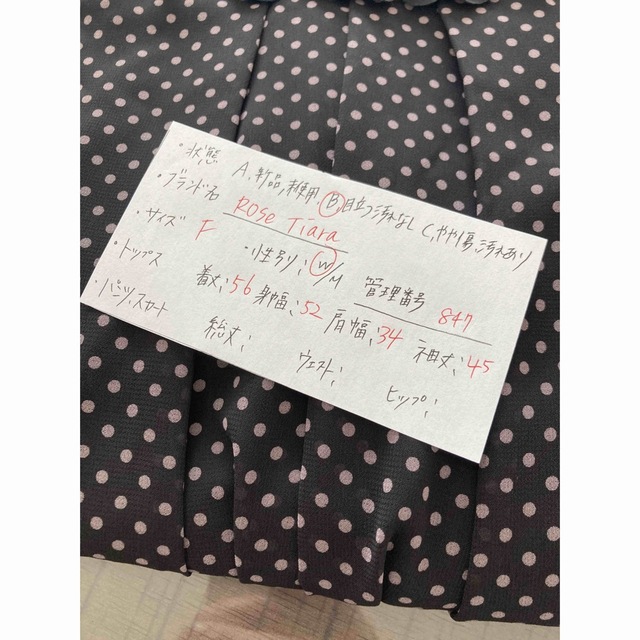 ・状態 A、新品,未使用、B、目立つ汚れなし C、やや傷、汚れあり
・ブランド名 Rose Tiara
・サイズ F ・性別り; W/M 管理番号 847
・トップス 着丈; 56 身幅; 52 肩幅; 34 袖丈; 45
・パンツ、スカート 総丈; ウエスト; ヒップ;